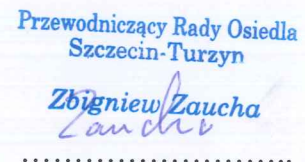 Przewodniczący Rady Osiedla
Szczecin-Turzyn
Zbigniew Zaucha
Zaucha
..........................